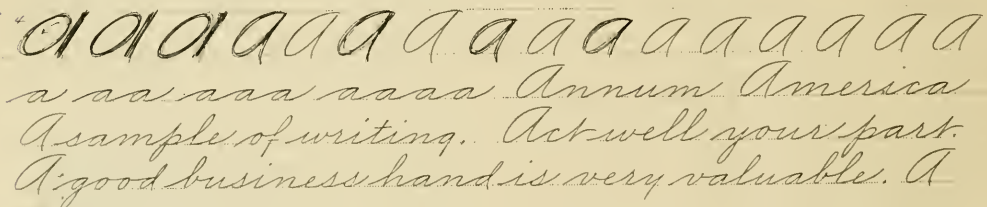 a a a a a a a a a a a a a a a a a
a aa aaa aaaa Annum America
A sample of writing. Act well your part.
A good business hand is very valuable. A